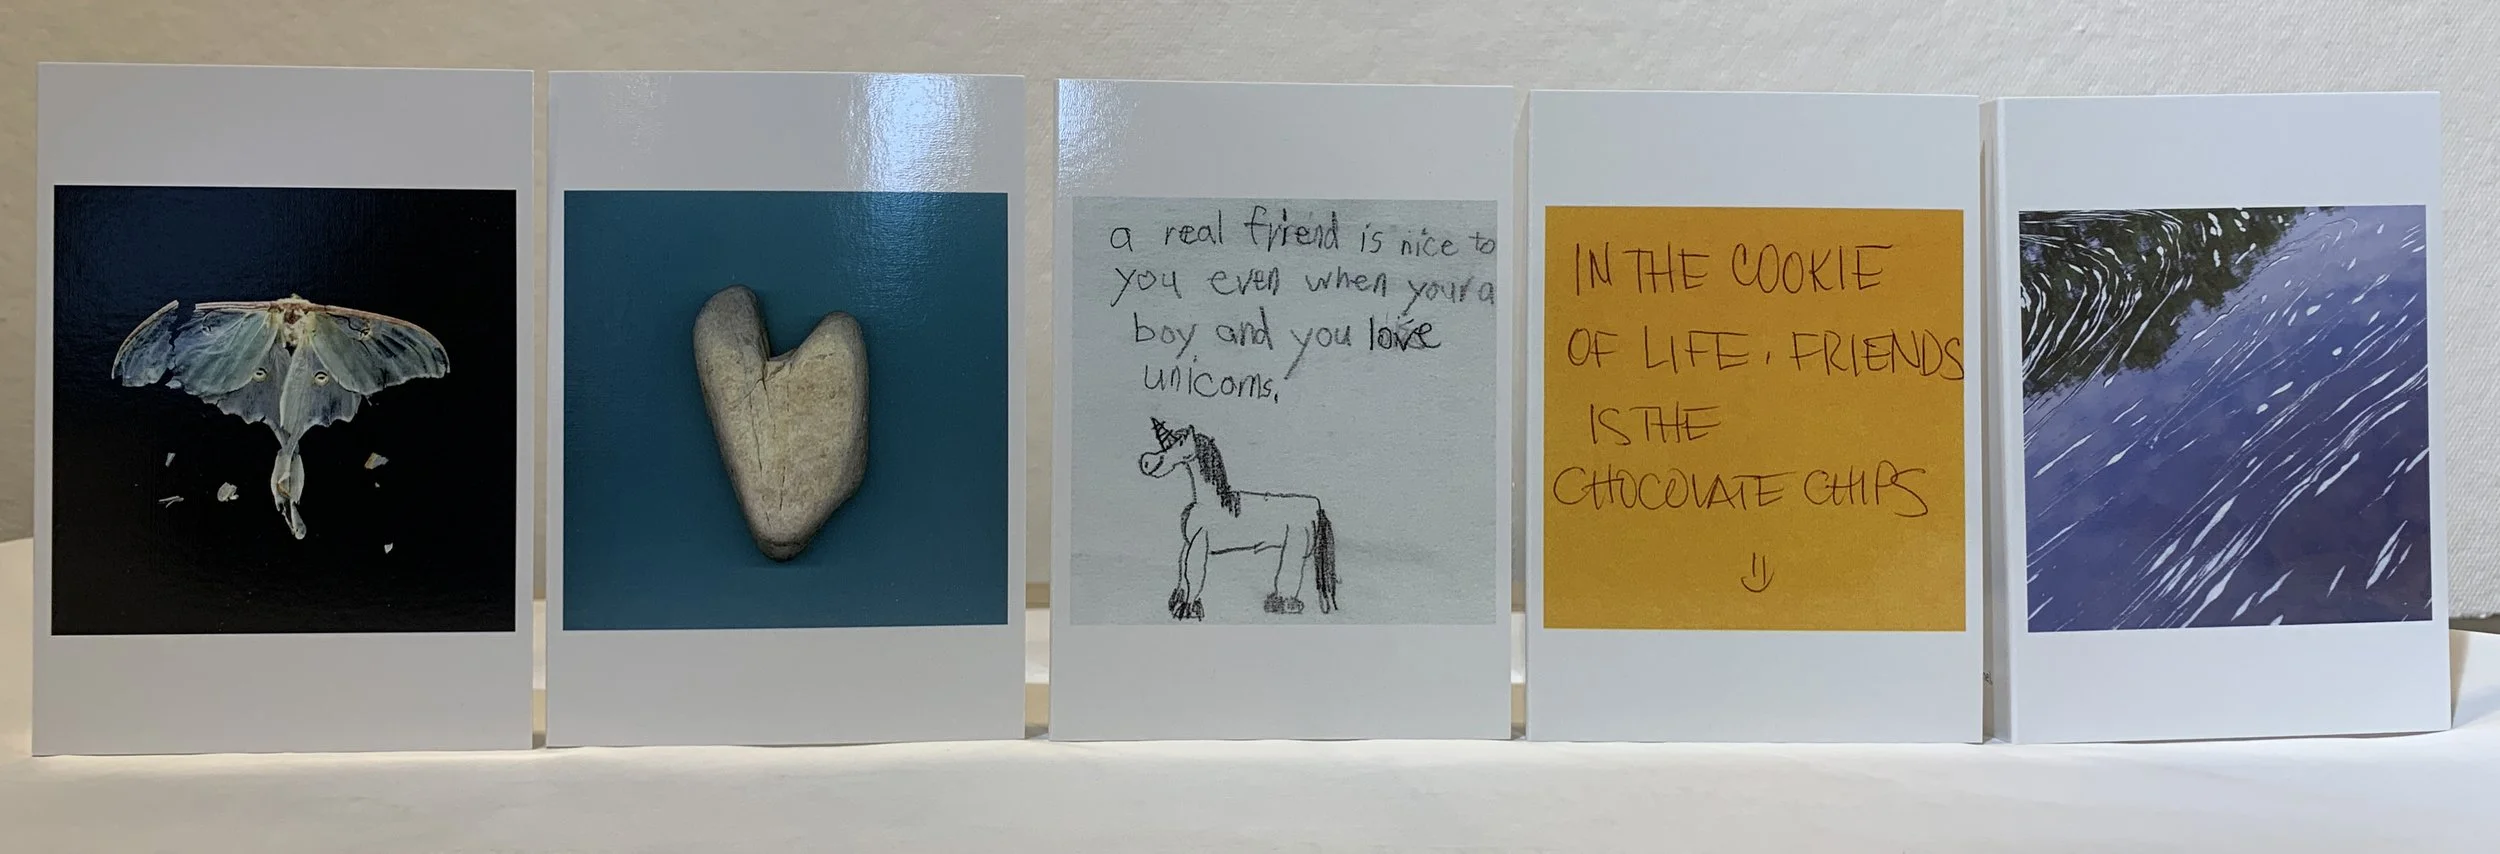 a real friend is nice to
you even when your a
boy and you love
unicorns.
IN THE COOKIE
OF LIFE, FRIENDS
IS THE
CHOCOLATE CHIPS